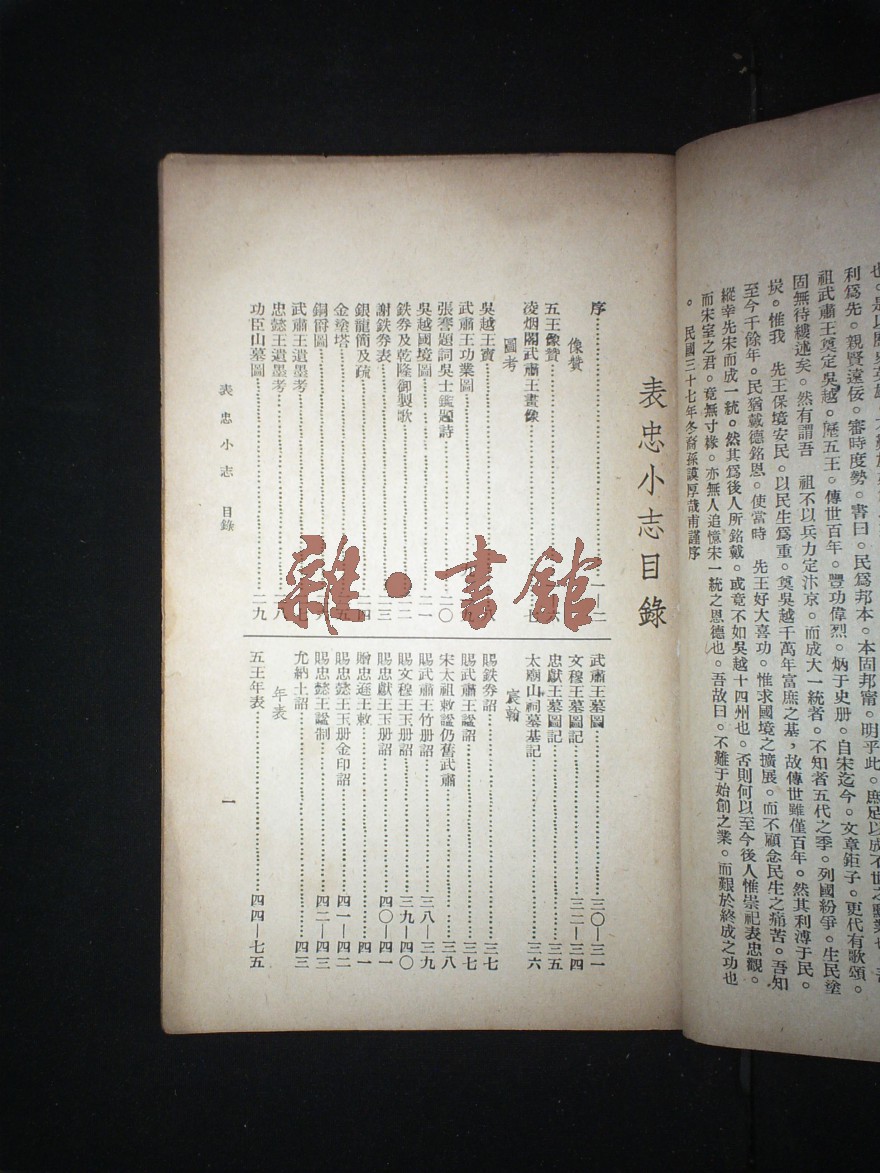 利爲先。親賢遠佞。審時度勢。書曰。民爲邦本。本固邦甯。明乎此。庶足以成不世之勳業也。
祖武肅王奠定吳越。歷五王。傳世百年。豐功偉烈。炳于史册。自宋迄今。文章鉅子。更代有歌頌。
固無待縷述矣。然有謂吾　祖不以兵力定汴京。而成大一統者。不知者五代之季。列國紛爭。生民塗
炭。惟我　先王保境安民。以民生爲重。奠吳越千萬年富庶之基，故傳世雖僅百年。然其利溥于民。
至今千餘年。民猶戴德銘恩。使當時　先王好大喜功。惟求國境之擴展。而不顧念民生之痛苦。吾知
縱幸先宋而成一統。然其爲後人所銘戴。或竟不如吳越十四州也。否則何以至今後人惟崇祀表忠觀。
而宋室之君。竟無寸椽。亦無人追憶宋一統之恩德也。吾故曰。不難于始創之業。而艱於終成之功也
。民國三十七年冬裔孫謨厚哉甫謹序
表忠小志目錄
序……一—二
像贊
五王像贊……六
凌烟閣武肅王畫像……七
圖考
吳越王寶
武肅王功業圖
張謇題詞吳士鑑題詩……二〇
吳越國境圖……二一
鉄券及乾隆御製歌……二二
謝鉄券表……二三
銀龍簡及疏……二四
金塗塔
銅爵圖
武肅王遺墨考
忠懿王遺墨考……二八
功臣山墓圖……二九
武肅王墓圖……三〇—三一
文穆王墓圖記……三二—三四
忠獻王墓圖記……三五
太廟山祠墓基記……三六
宸翰
賜鉄券詔……三七
賜武肅王謚詔……三七
宋太祖敕謚仍舊武肅……三八
賜武肅王竹册詔……三八—三九
賜文穆王玉册詔……三九—四〇
賜忠獻王玉册詔……四〇—四一
贈忠遜王敕……四一
賜忠懿王玉册金印詔……四一—四二
賜忠懿王謚制……四二—四三
允納土詔……四三
年表
五王年表……四四—七五
表忠小志　目錄
一
雜·書館